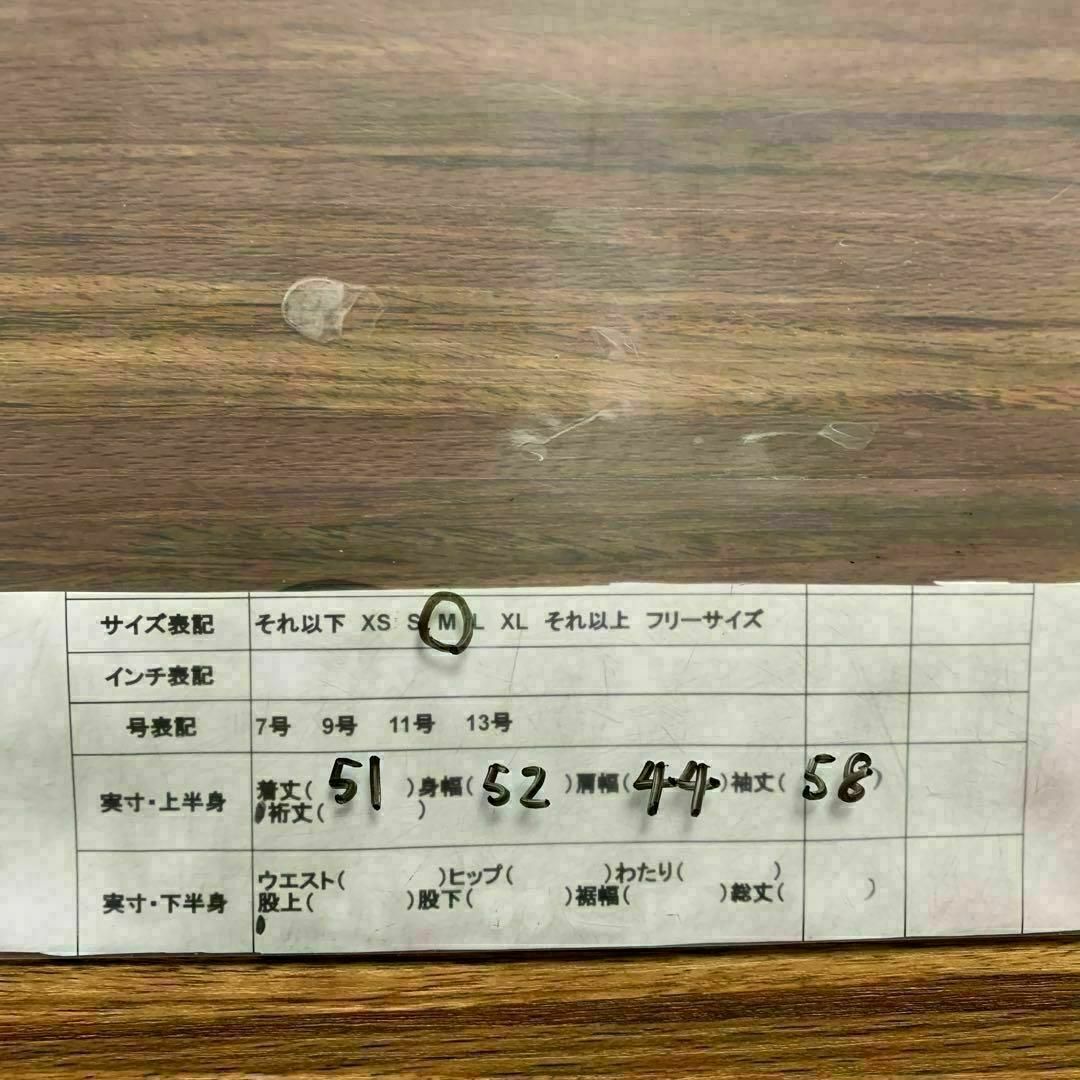 サイズ表記 それ以下 XS S M L XL それ以上 フリーサイズ
インチ表記
号表記 7号 9号 11号 13号
実寸・上半身 着丈( 51 )身幅( 52 )肩幅( 44 )袖丈( 58 )
裄丈( )
実寸・下半身 ウエスト( )ヒップ( )わたり( )
股上( )股下( )裾幅( )総丈( )